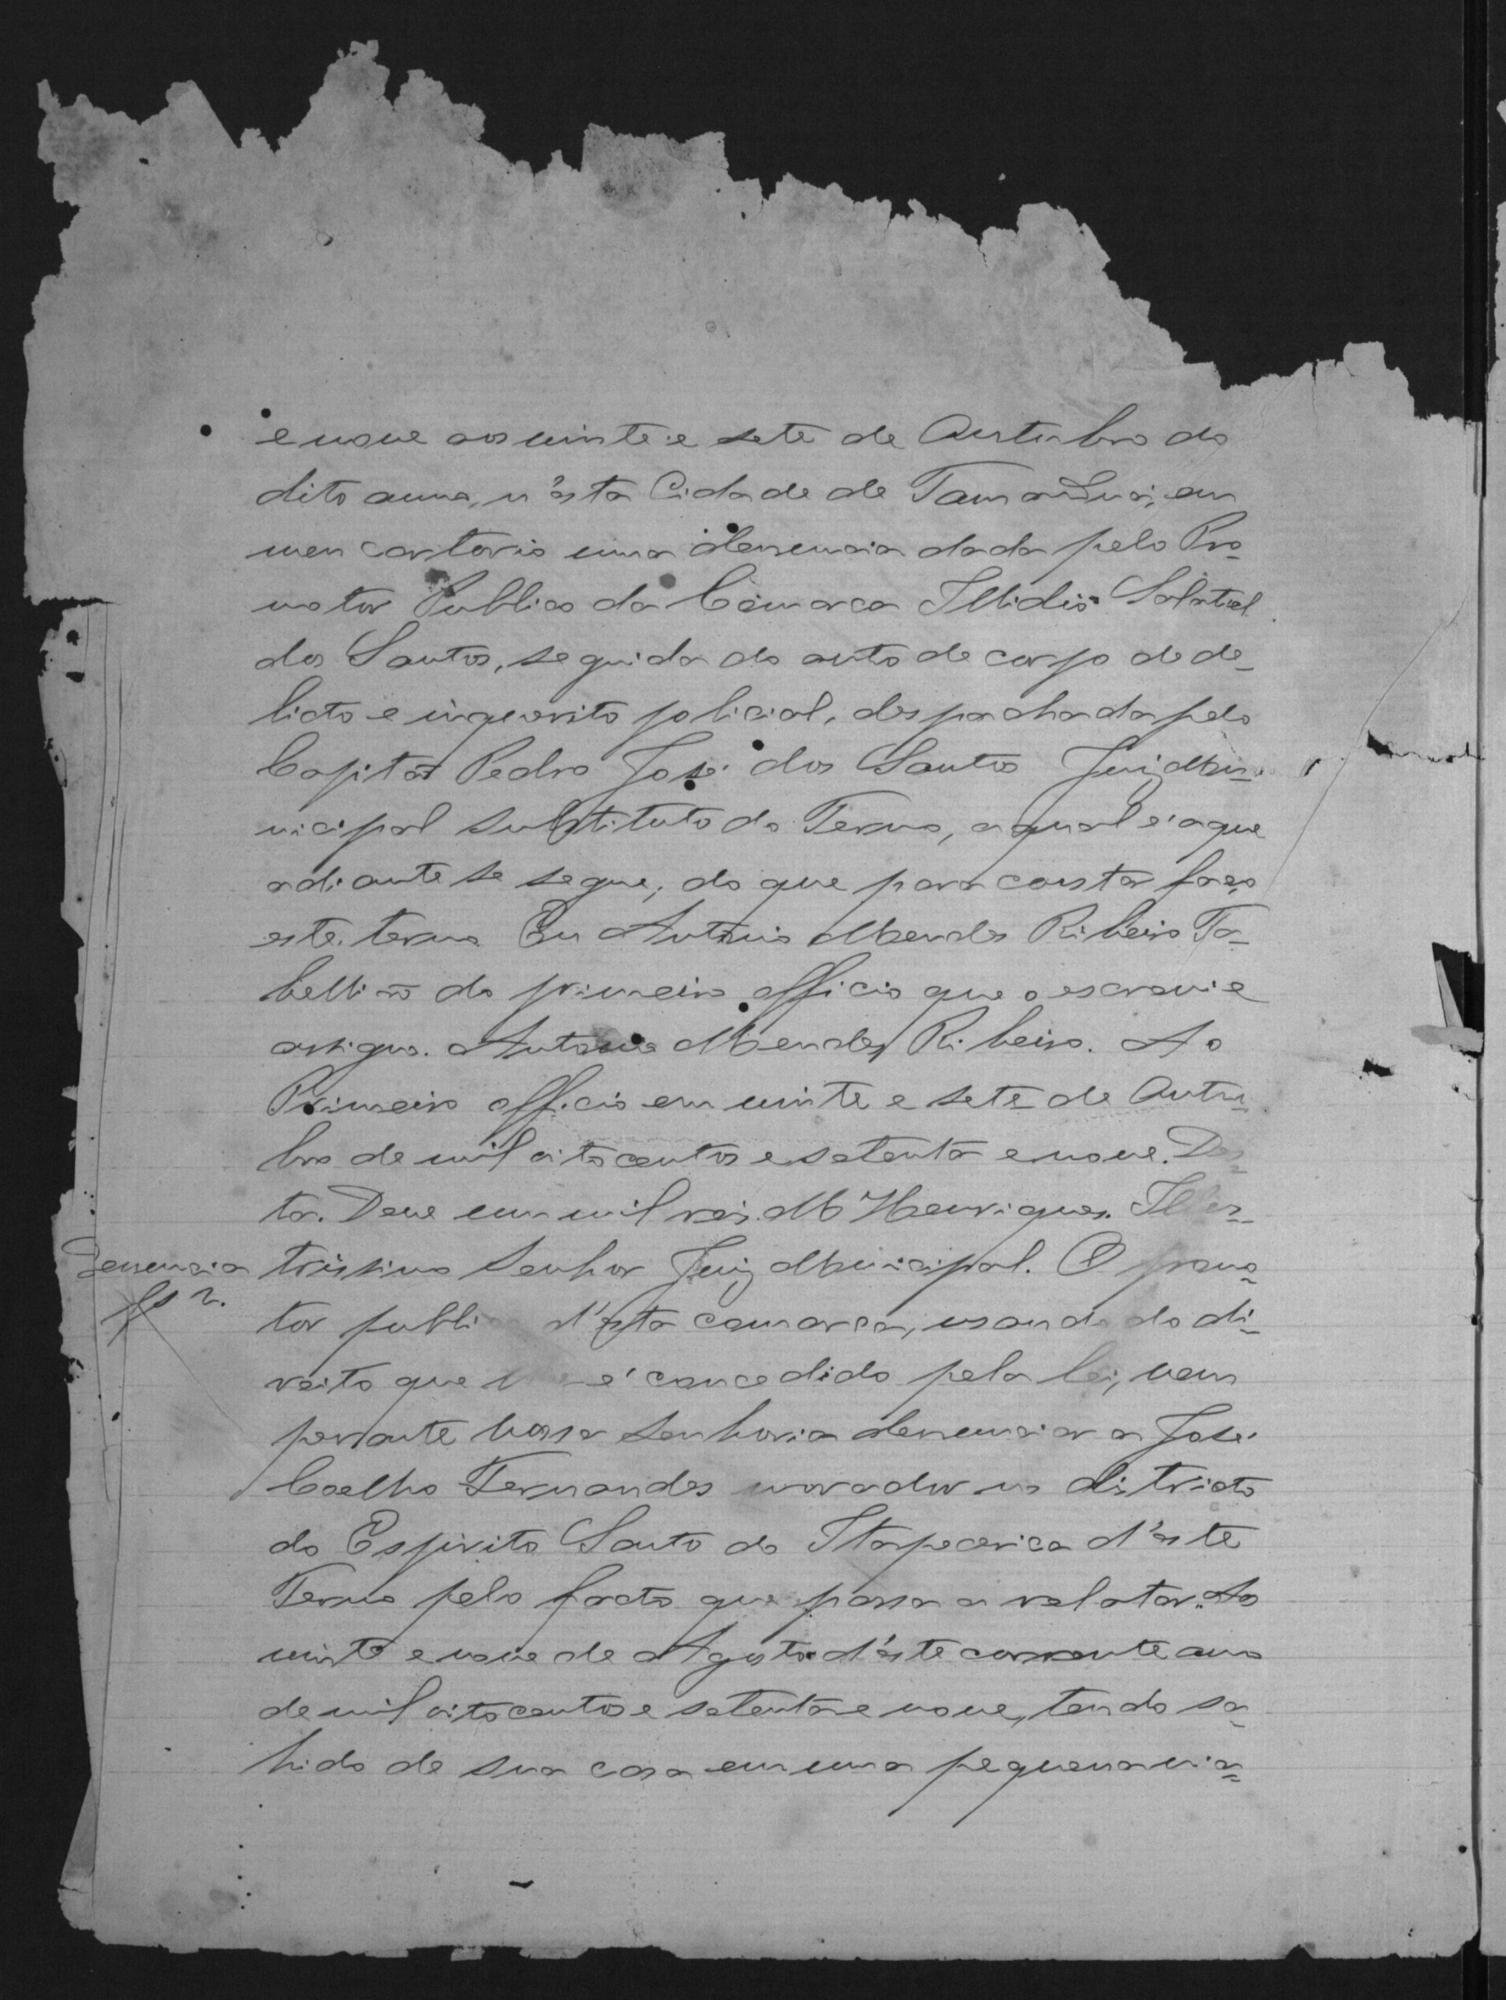 e nove aos vinte e sete de Outubro do
dito anno, n'esta Cidade de Tamanduá, em
meu cartorio uma denuncia dada pelo Pro-
motor Publico da Comarca Illidio Salatiel
dos Santos, seguida do auto de corpo de de-
licto e inquerito policial, despachada pelo
Capitão Pedro José dos Santos Juiz Mu-
nicipal substituto do Termo, a qual é a que
adiante se segue, do que para constar faço
este termo Eu Antonio Mendes Ribeiro Ta-
bellião do primeiro officio que o escrevi e
assigno. Antonio Mendes Ribeiro. Ao
Primeiro officio em vinte e sete de Outu-
bro de mil oitocentos e setenta e nove. Des-
ta. Deve um mil reis. M Henriques. Illus-
Denuncia
fs 2.
trissimo Senhor Juiz Municipal. O promo-
tor publico d'esta comarca, usando do di-
reito que é concedido pela lei, vem
perante vossa Senhoria denunciar a José
Coelho Fernandes morador no districto
do Espirito Santo do Itapecerica d'este
Termo pelo facto que passa a relatar. Ao
vinte e nove de Agosto d'este corrente anno
de mil oitocentos e setenta e nove, tendo sa-
hido de sua casa em uma pequena via-